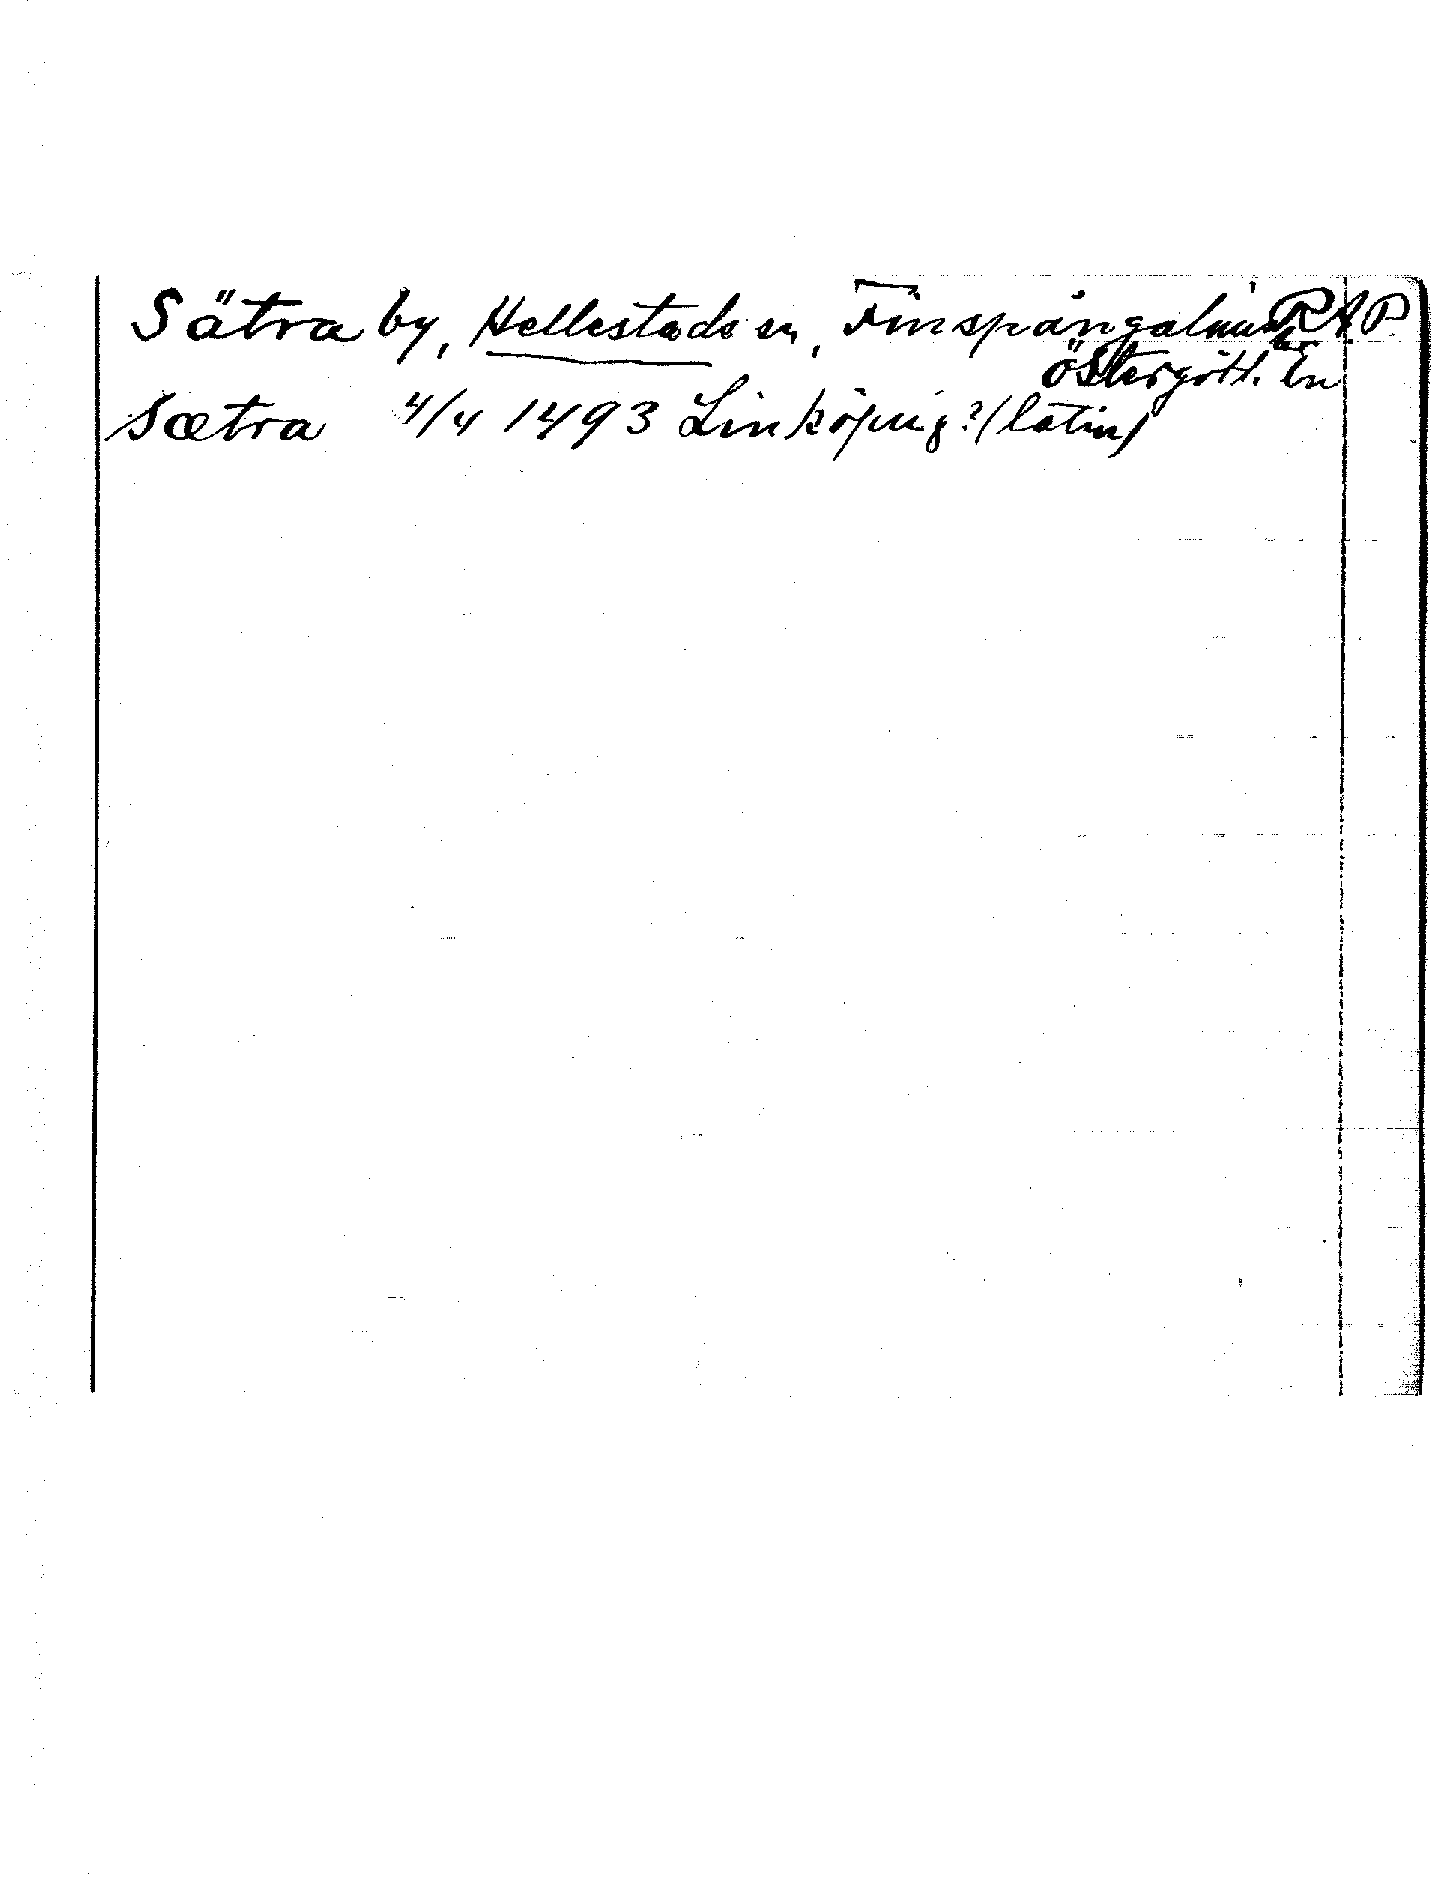 Sätra by, Hellestads sn, Finspångalains RAP
Östergötl. län
Sætra 4/4 1493 Linköping? (latin)